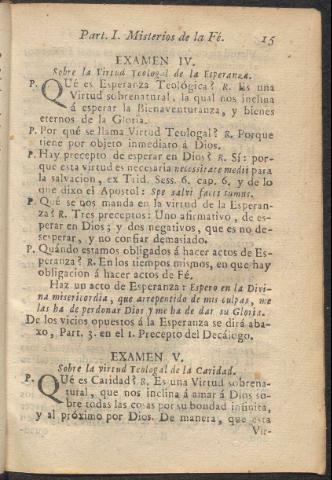 Part. I. Misterios de la Fé. 15
EXAMEN IV.
Sobre la Virtud Teologal de la Esperanza.
P. QUé es Esperanza Teológica? R. Es una
Virtud sobrenatural, la qual nos inclina
á esperar la Bienaventuranza, y bienes
eternos de la Gloria.
P. Por qué se llama Virtud Teologal? R. Porque
tiene por objeto inmediato á Dios.
P. Hay precepto de esperar en Dios? R. Sí: por-
que esta virtud es necesaria necessitate medii para
la salvacion, ex Trid. Sess. 6. cap. 6, y de lo
que dixo el Apostol: Spe salvi facti sumus.
P. Qué se nos manda en la virtud de la Esperan-
za? R. Tres preceptos: Uno afirmativo, de es-
perar en Dios; y dos negativos, que es no de-
sesperar, y no confiar demasiado.
P. Quándo estamos obligados á hacer actos de Es-
peranza? R. En los tiempos mismos, en que hay
obligacion á hacer actos de Fé.
Haz un acto de Esperanza: Espero en la Divi-
na misericordia, que arrepentido de mis culpas, me
las ha de perdonar Dios y me ha de dar su Gloria.
De los vicios opuestos á la Esperanza se dirá aba-
xo, Part. 3. en el 1. Precepto del Decálogo.
EXAMEN V.
Sobre la virtud Teologal de la Caridad.
P. QUé es Caridad? R. Es una Virtud sobrena-
tural, que nos inclina á amar á Dios so-
bre todas las cosas por su bondad infinita,
y al próximo por Dios. De manera, que esta
Vir-